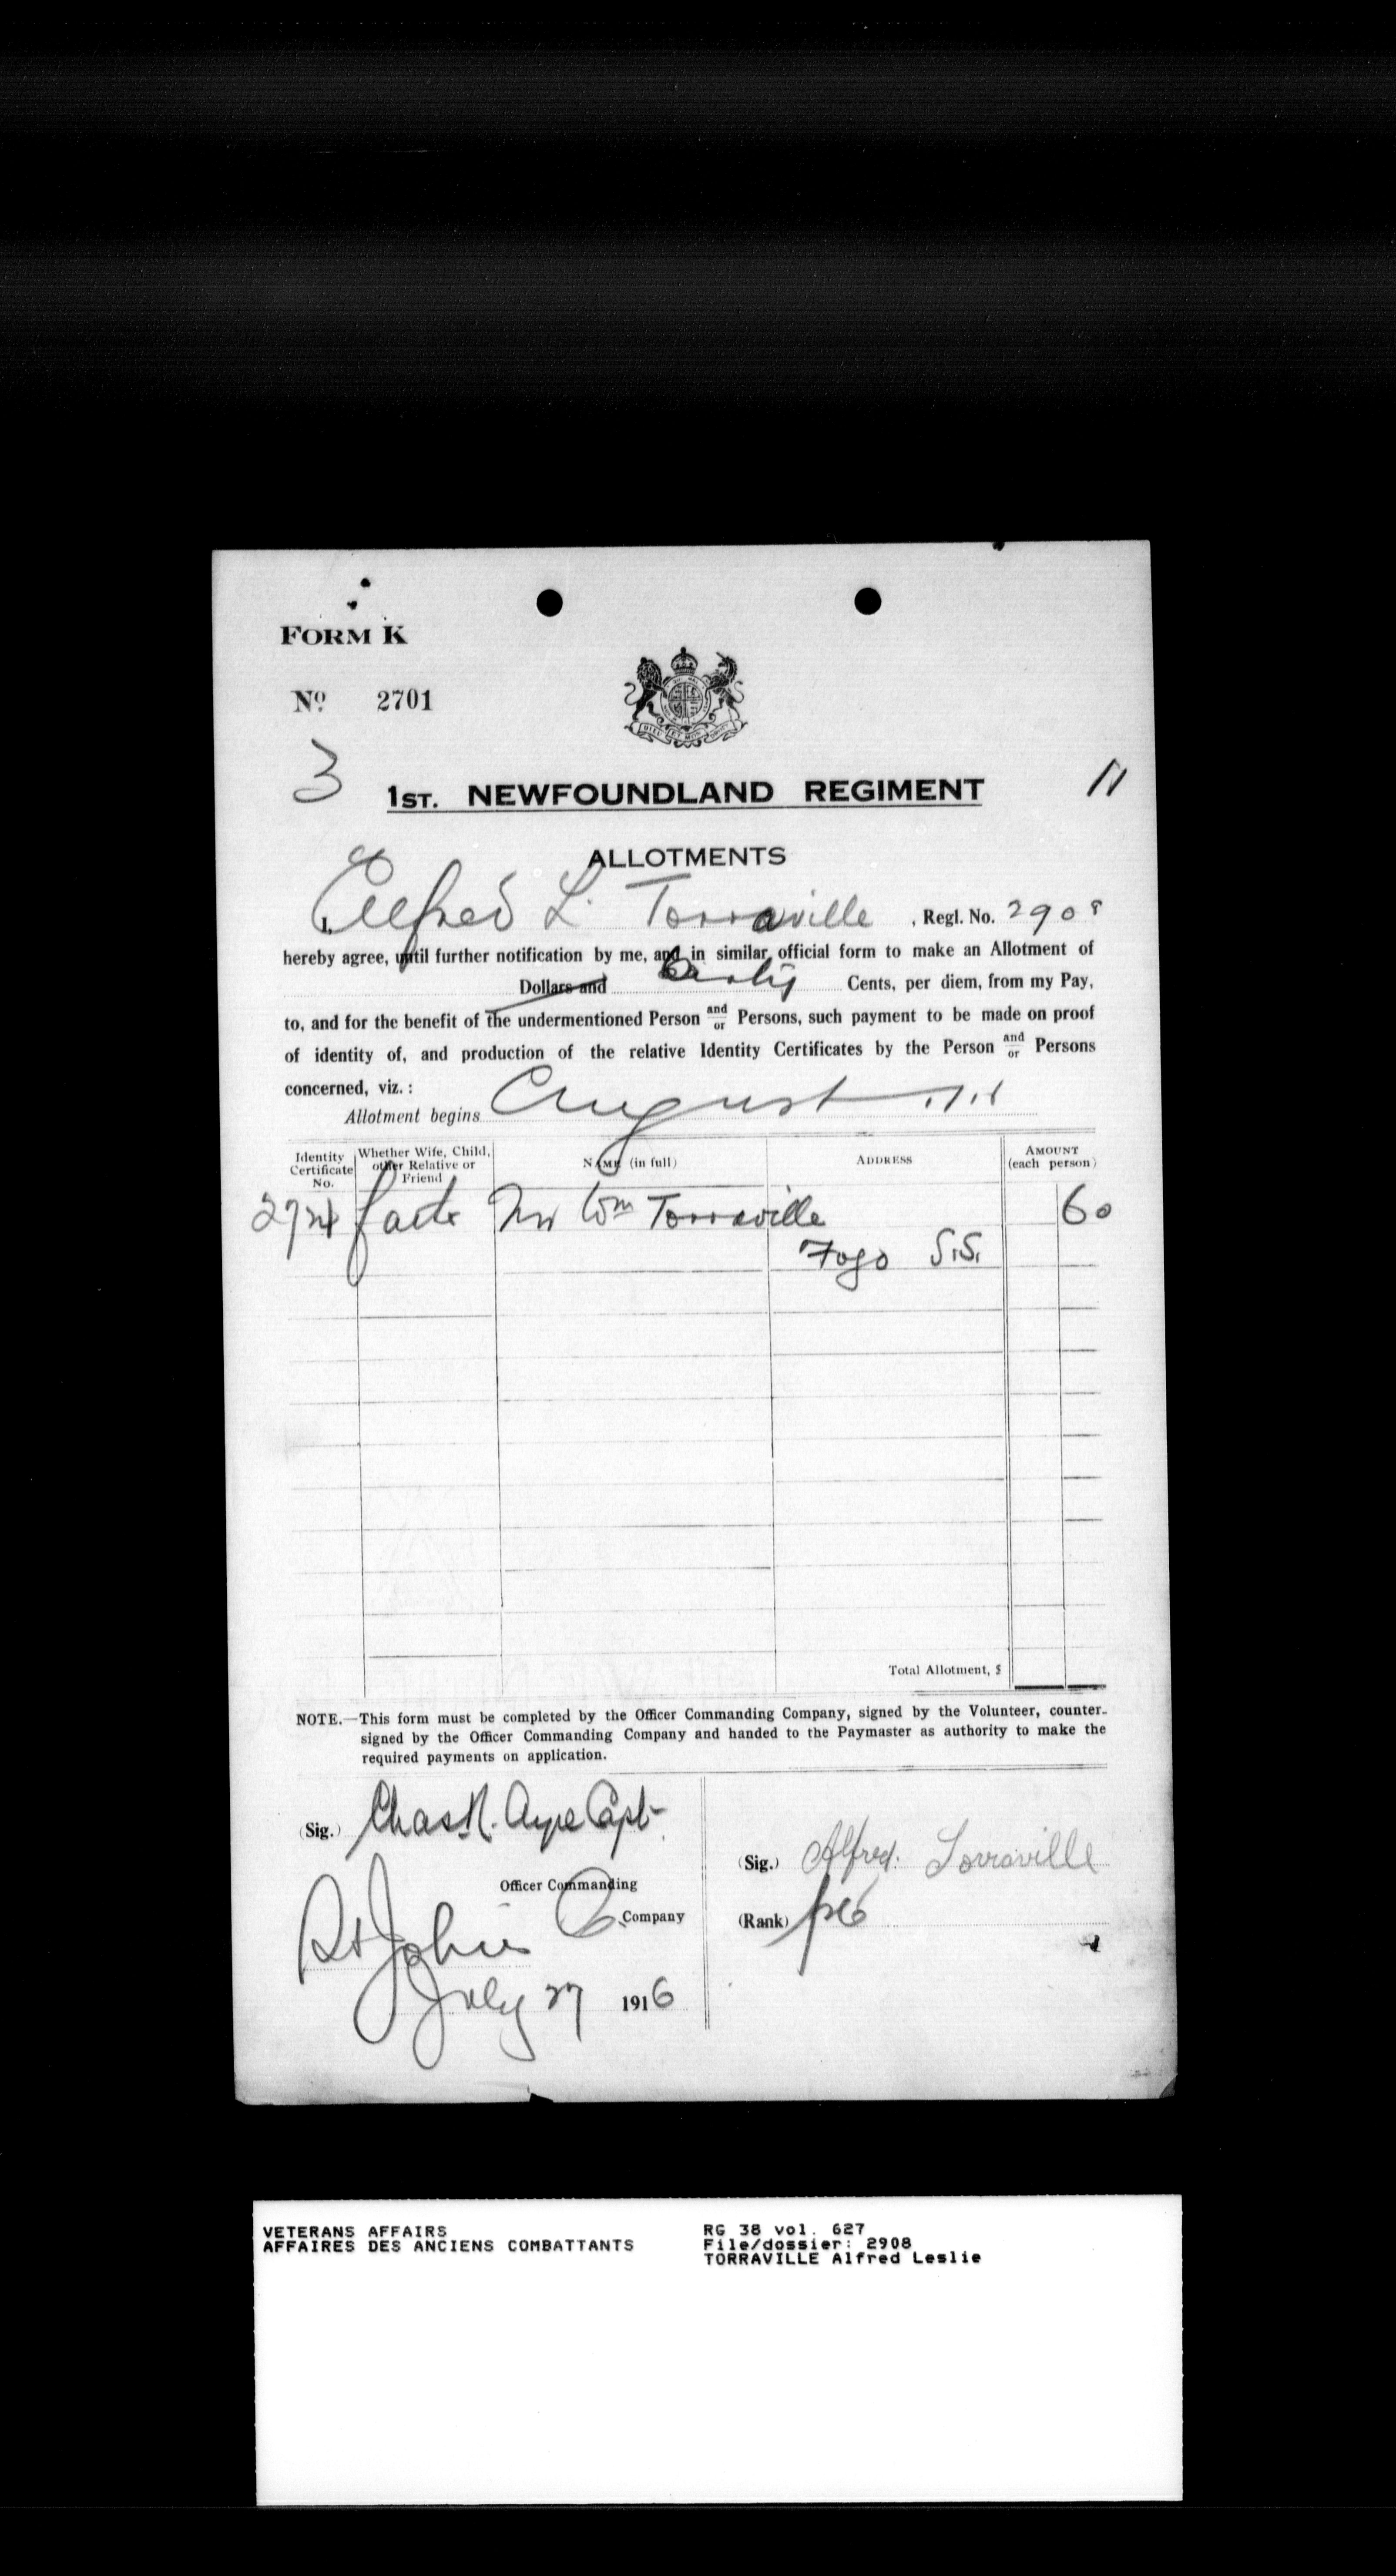 FORM K
No 2701
3
1ST. NEWFOUNDLAND REGIMENT
11
ALLOTMENTS
I, Alfred L. Torraville, Regl. No. 2908
hereby agree, until further notification by me, and in similar official form to make an Allotment of
Dollars and Sixty Cents, per diem, from my Pay,
to, and for the benefit of the undermentioned Person and/or Persons, such payment to be made on proof
of identity of, and production of the relative Identity Certificates by the Person and/or Persons
concerned, viz. :
Allotment begins August
Identity Certificate No. Whether Wife, Child, other Relative or Friend NAME (in full) ADDRESS AMOUNT (each person)
Wm Torraville 60
Fogo
Total Allotment, $
NOTE.—This form must be completed by the Officer Commanding Company, signed by the Volunteer, counter-
signed by the Officer Commanding Company and handed to the Paymaster as authority to make the
required payments on application.
(Sig.) Chas R. Ayre Capt
Officer Commanding
Company
St John's
July 27 1916
(Sig.) Alfred. Torraville
(Rank) Pte
VETERANS AFFAIRS
AFFAIRES DES ANCIENS COMBATTANTS
RG 38 vol. 627
File/dossier: 2908
TORRAVILLE Alfred Leslie